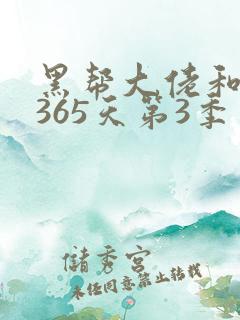 黑帮大佬和
365天第3季
儲秀宫
未经同意禁止转载